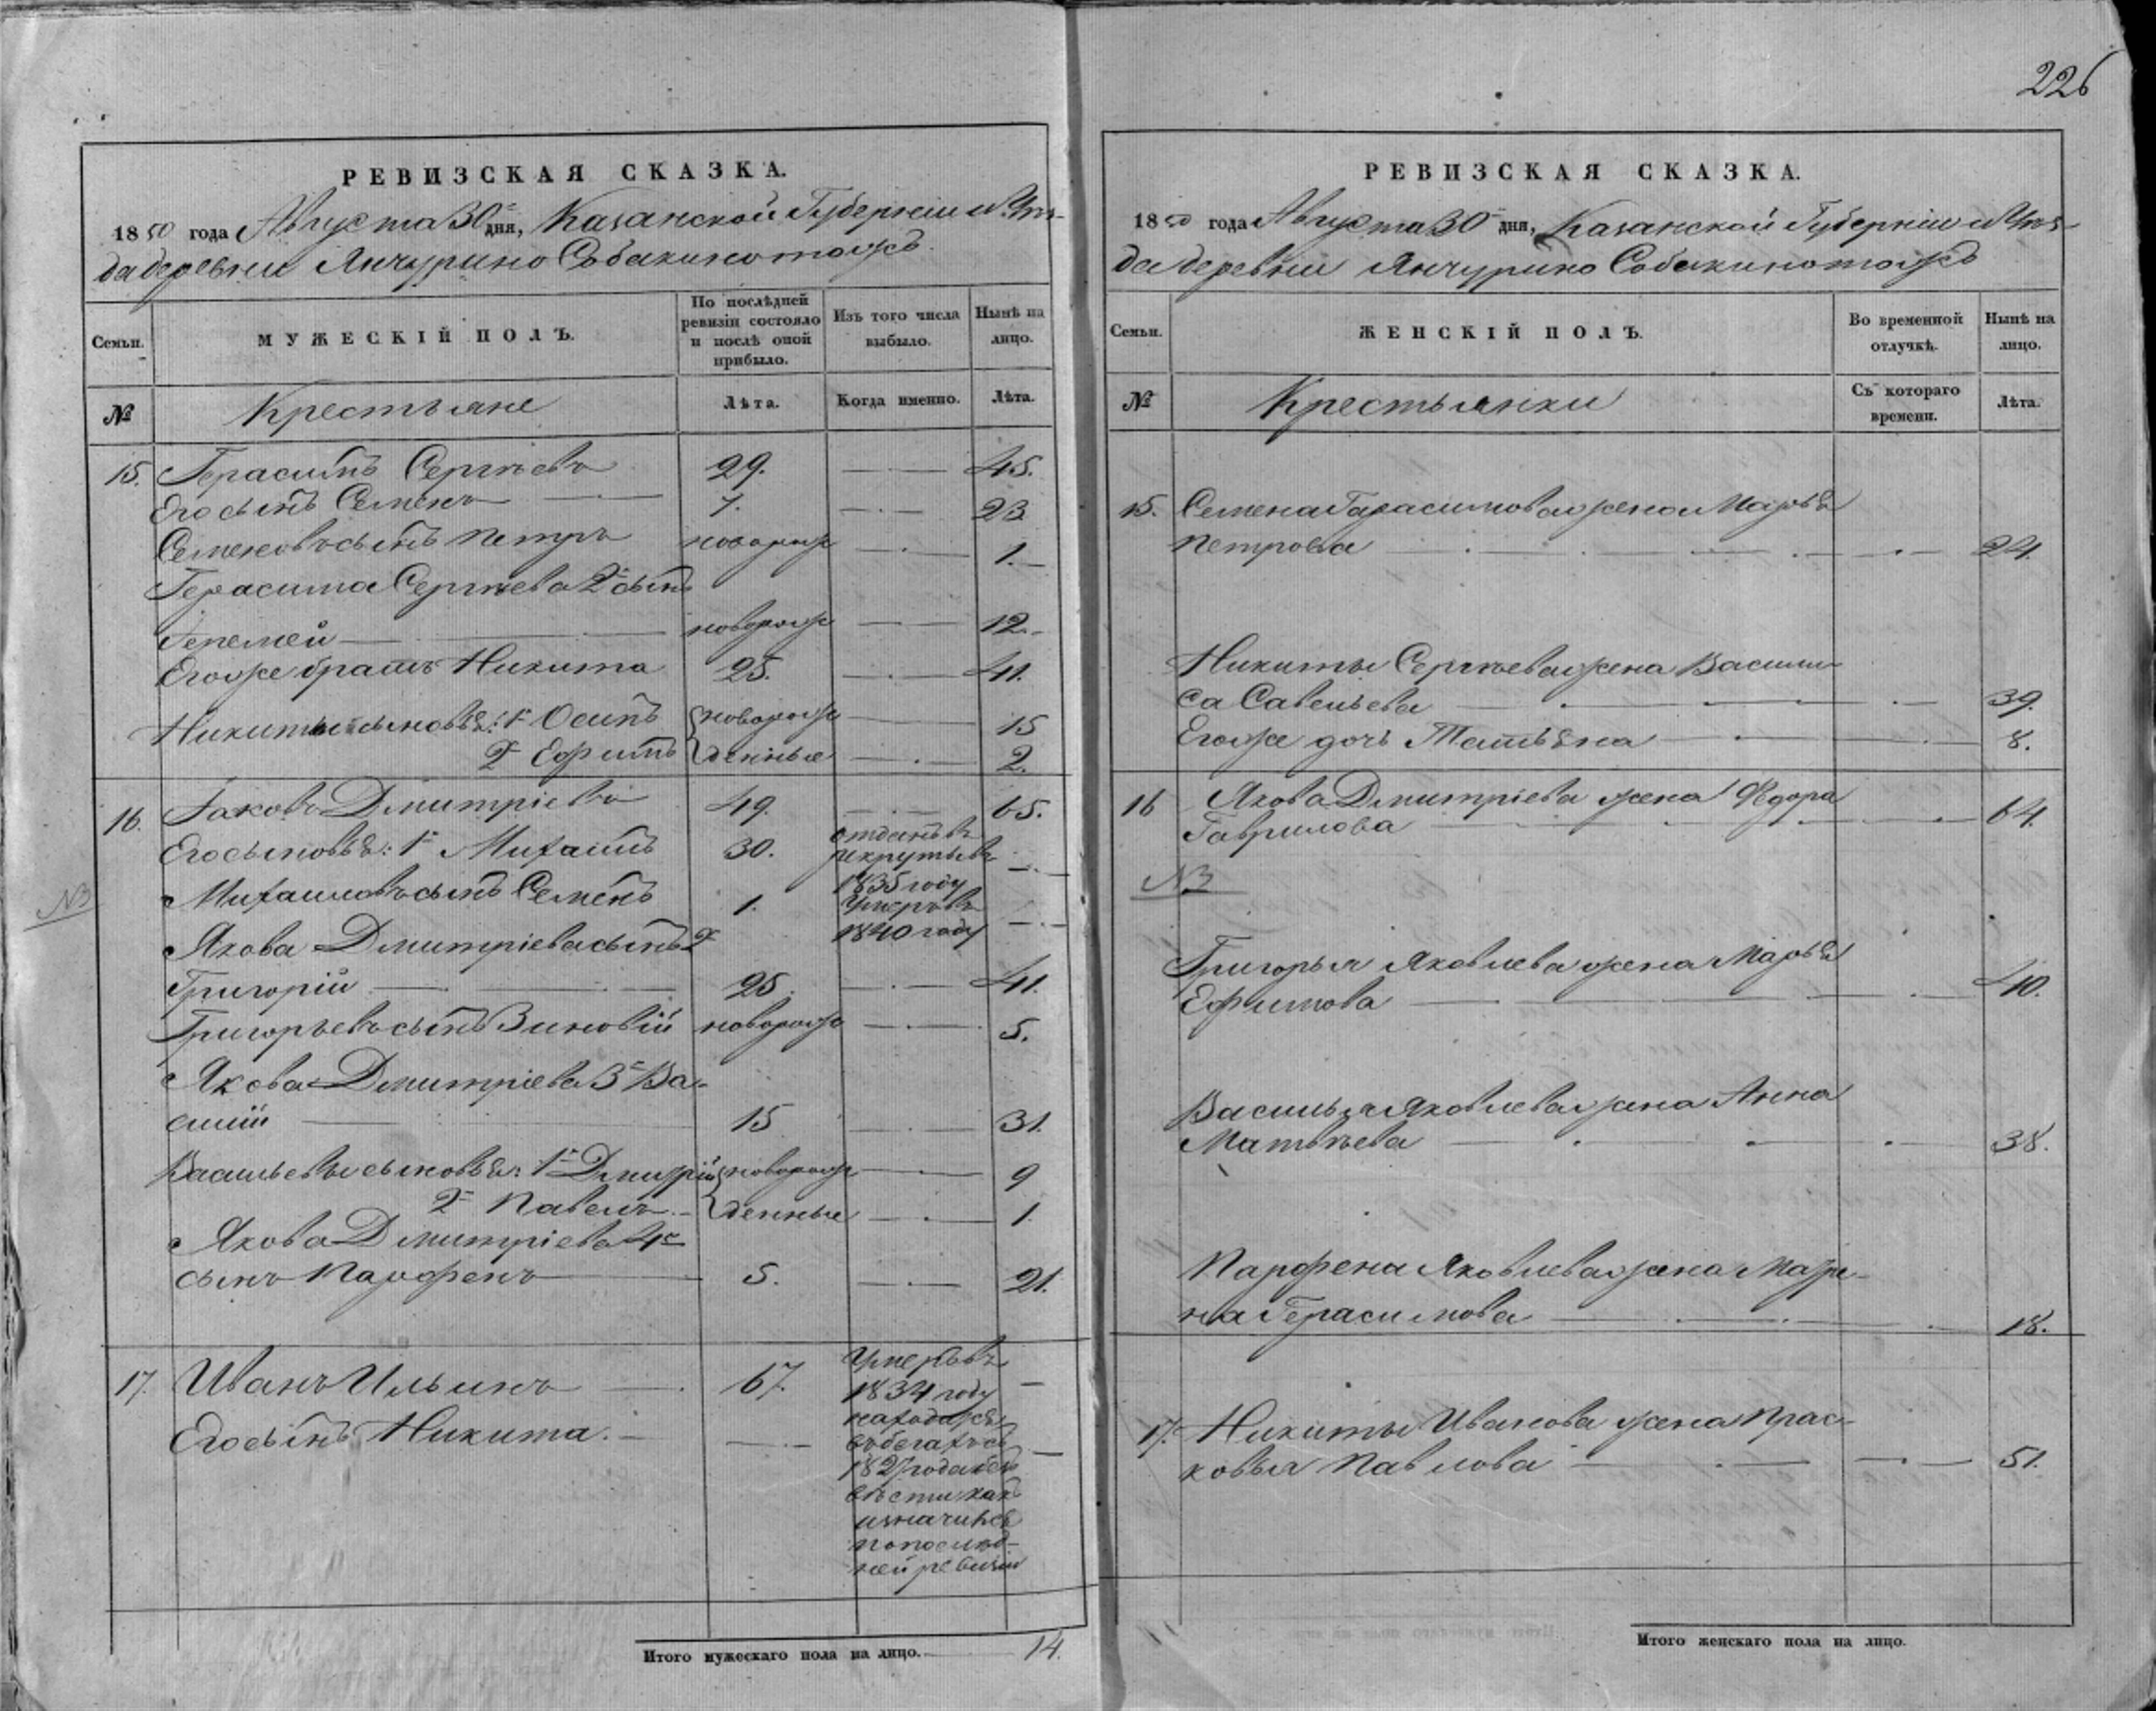 226
РЕВИЗСКАЯ СКАЗКА.
1850 года Августа 30 дня, Казанской Губерніи и Уѣз-
да деревни Янчурино Собакино тожъ
Семьи.
МУЖЕСКІЙ ПОЛЪ.
По послѣдней ревизіи состояло и послѣ оной прибыло.
Изъ того числа выбыло.
Нынѣ на лицо.
№
Крестьяне
Лѣта.
Когда именно.
Лѣта.
15. Герасимъ Сергѣевъ 29. 45.
Его сынъ Семенъ 7. 23
Семеновъ сынъ Петръ новорож 1.
Герасима Сергѣева 2й сынъ
новорож 12.
Его же братъ Никита 25. 41.
Никиты сыновья: 1й Осипъ новорож 15
2й Ефимъ денные 2.
16. Іаковъ Дмитріевъ 49. 65.
Его сыновья: 1й Михаилъ 30. отданъ въ
рекруты въ
1835 году
Михаиловъ сынъ Семенъ 1. Умеръ въ
1840 году
Якова Дмитріева сынъ 2й
Григорій 25. 41.
Григорьевъ сынъ Зиновій новорож 5.
Якова Дмитріева 3й Ва-
силій 15 31.
Васильевы сыновья: 1й Дмитрій новорож 9
2й Павелъ денные 1.
Якова Дмитріева 4й
сынъ Парфенъ 5. 21.
17. Иванъ Ильинъ 67. Умеръ въ
1834 году
Его сынъ Никита. находится
въ бегахъ съ
1827 года без
вѣсти какъ
и значится
по послѣд-
ней ревизіи
Итого мужескаго пола на лицо. 14.
РЕВИЗСКАЯ СКАЗКА.
1850 года Августа 30 дня, Казанской Губерніи и Уѣз-
да деревни Янчурино Собакино тожъ
Семьи.
ЖЕНСКІЙ ПОЛЪ.
Во временной отлучкѣ.
Нынѣ на лицо.
№
Крестьянки
Съ котораго времени.
Лѣта.
15. Семена Гарасимова жена Марья
Петрова 24.
Никиты Сергѣева жена Васили-
са Савельева 39.
Его же дочь Татьяна 8.
16 Якова Дмитріева жена Федора
Гаврилова 64.
Григорья Яковлева жена Марья
Ефимова 40.
Василья Яковлева жена Анна
Матвѣева 38.
Парфена Яковлева жена Матре-
на Герасимова 18.
17. Никиты Иванова жена Прас-
ковья Павлова 51.
Итого женскаго пола на лицо.